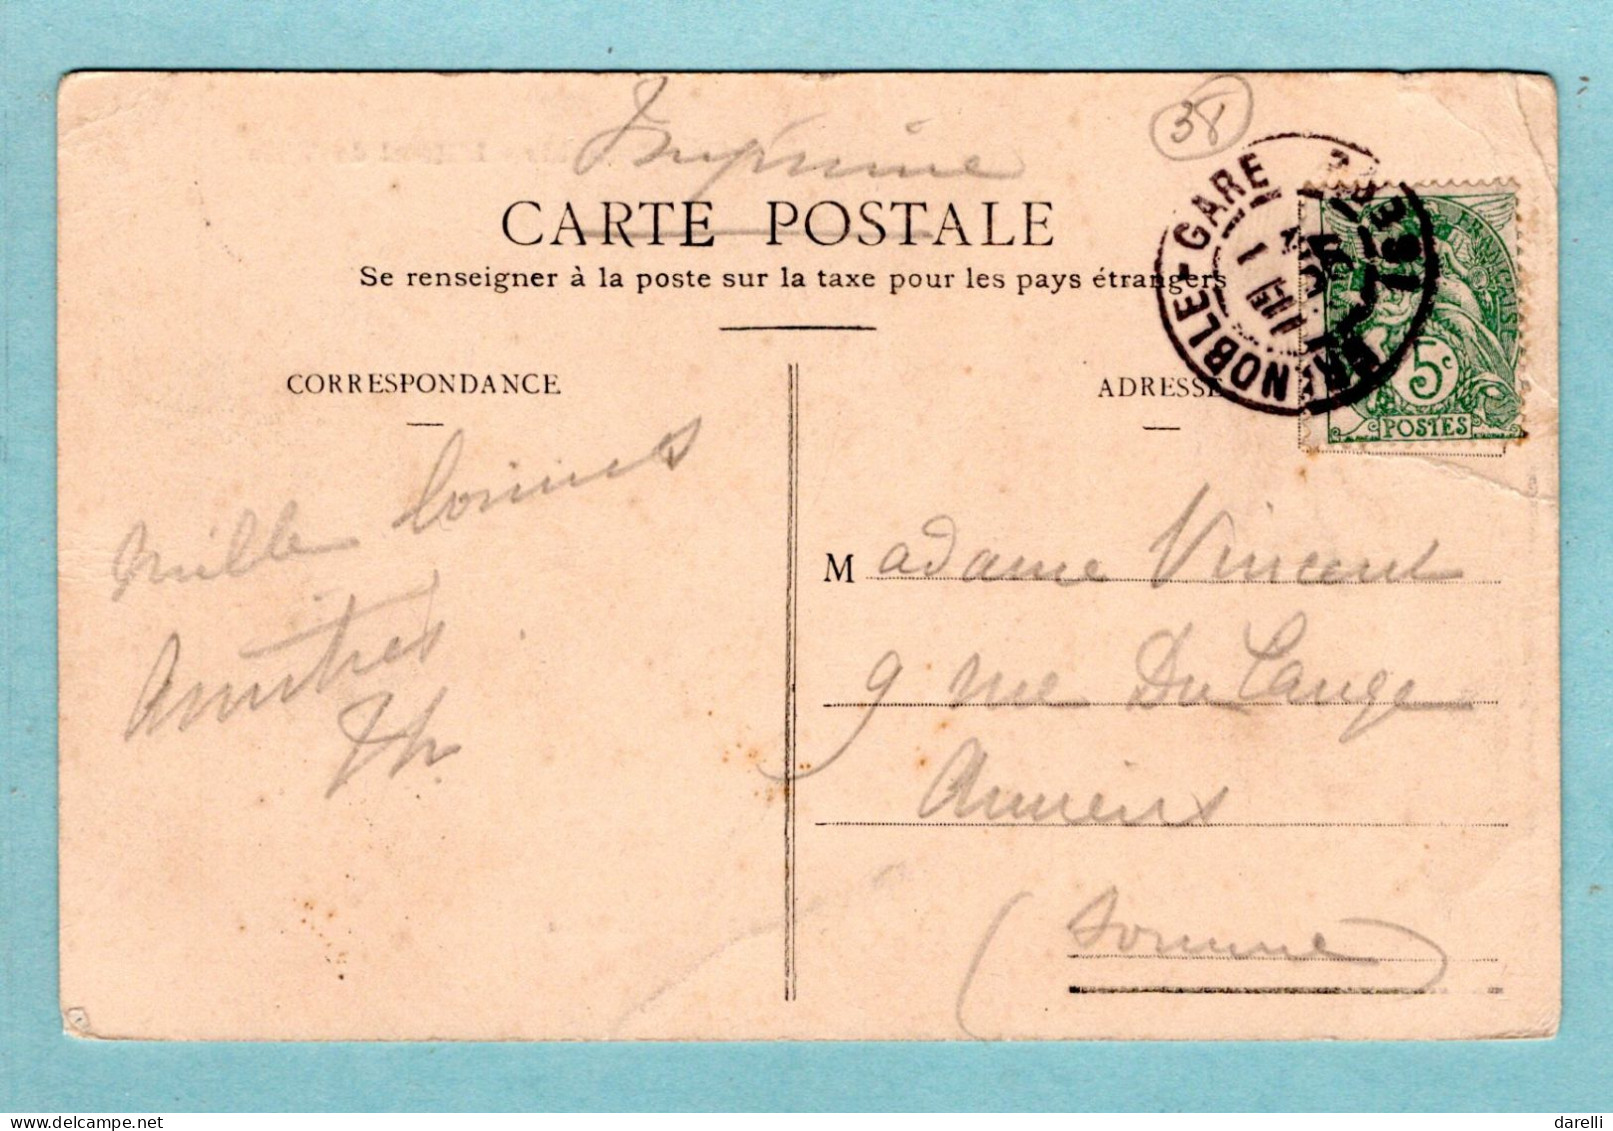 Imprimé
38
CARTE POSTALE
Se renseigner à la poste sur la taxe pour les pays étrangers
GRENOBLE-GARE
ISERE
FRANÇAISE
5c
POSTES
CORRESPONDANCE
ADRESSE
Mille bonnes
Amitiés
Th.
Madame Vincent
9 rue Du Cange
Amiens
(Somme)
darelli